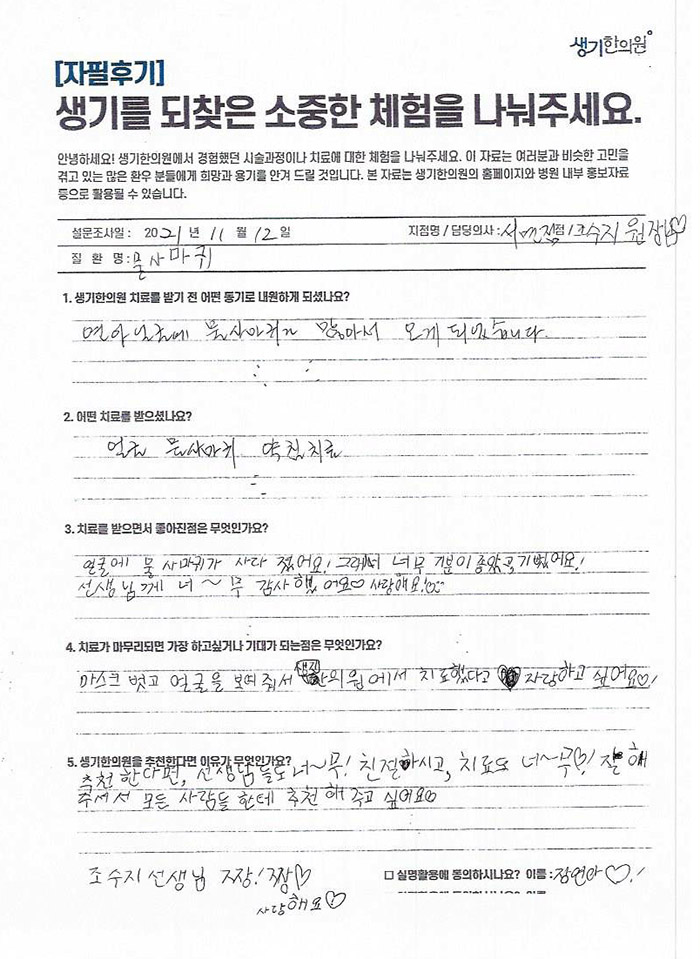 생기한의원
[자필후기]
생기를 되찾은 소중한 체험을 나눠주세요.
안녕하세요! 생기한의원에서 경험했던 시술과정이나 치료에 대한 체험을 나눠주세요. 이 자료는 여러분과 비슷한 고민을
겪고 있는 많은 환우 분들에게 희망과 용기를 안겨 드릴 것입니다. 본 자료는 생기한의원의 홈페이지와 병원 내부 홍보자료
등으로 활용될 수 있습니다.
설문조사일 : 2021 년 11 월 12 일 지점명 / 담당의사 : 서면점점 / 조수지 원장님♡
질 환 명 : 물사마귀
1. 생기한의원 치료를 받기 전 어떤 동기로 내원하게 되셨나요?
연아 얼굴에 물사마귀가 많아서 오게 되었습니다.
2. 어떤 치료를 받으셨나요?
얼굴 물사마귀 약침치료
3. 치료를 받으면서 좋아진점은 무엇인가요?
얼굴에 물 사마귀가 사라 졌어요! 그래서 너무 기분이 좋았고, 기뻤어요!
선생님께 너~무 감사했어요♡ 사랑해요!♡
4. 치료가 마무리되면 가장 하고싶거나 기대가 되는점은 무엇인가요?
마스크 벗고 얼굴을 보여줘서 생기한의원에서 치료했다고 자랑하고 싶어요♡!
5. 생기한의원을 추천한다면 이유가 무엇인가요?
추천 한다면, 선생님들도 너~무! 친절하시고, 치료도 너~무♡! 잘 해
주셔서 모든 사람들 한테 추천 해 주고 싶어요♡
조수지 선생님 짱! 짱♡
사랑해요♡
□ 실명활용에 동의하시나요? 이름 : 장연아♡!